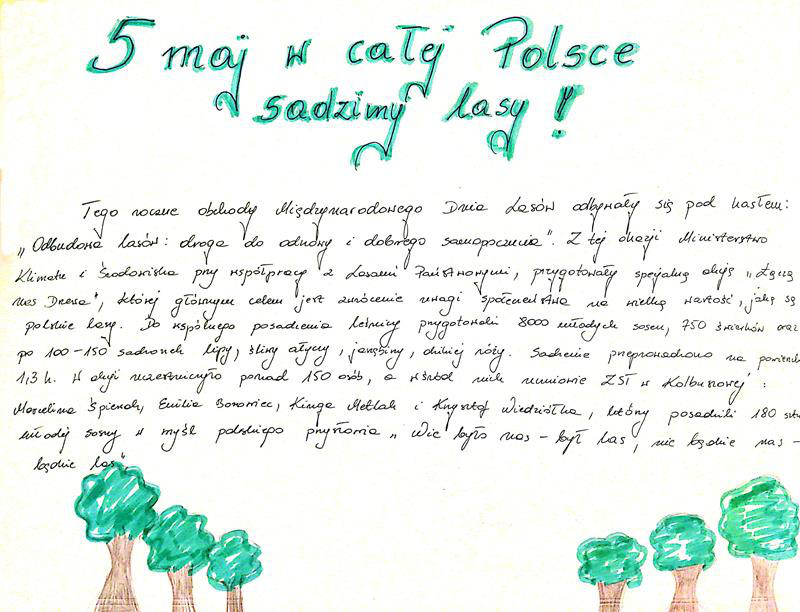 5 maj w całej Polsce
sadzimy lasy!
Tego roczne obchody Międzynarodowego Dnia Lasów odbywały się pod hasłem:
„Odbudowa lasów: droga do odnowy i dobrego samopoczucia". Z tej okazji Ministerstwo
Klimatu i Środowiska przy współpracy z Lasami Państwowymi, przygotowały specjalną akcję „Łączą
nas Drzewa", której głównym celem jest zwrócenie uwagi społeczeństwa na wielką wartość, jaką są
polskie lasy. Do wspólnego posadzenia leśnicy przygotowali 8000 młodych sosen, 750 świerków oraz
po 100-150 sadzonek lipy, śliwy ałyczy, jarzębiny, dzikiej róży. Sadzenie przeprowadzono na powierzch
1,3 h. W akcji uczestniczyło ponad 150 osób, a wśród nich uczniowie ZST w Kolbuszowej:
Marcelina Śpiewak, Emilia Borowiec, Kinga i Krzysztof Wiedziółka, którzy posadzili 180 sztu
młodej sosny w myśl polskiego przysłowia „ Wie było nas - był las, nie będzie nas -
będzie las"